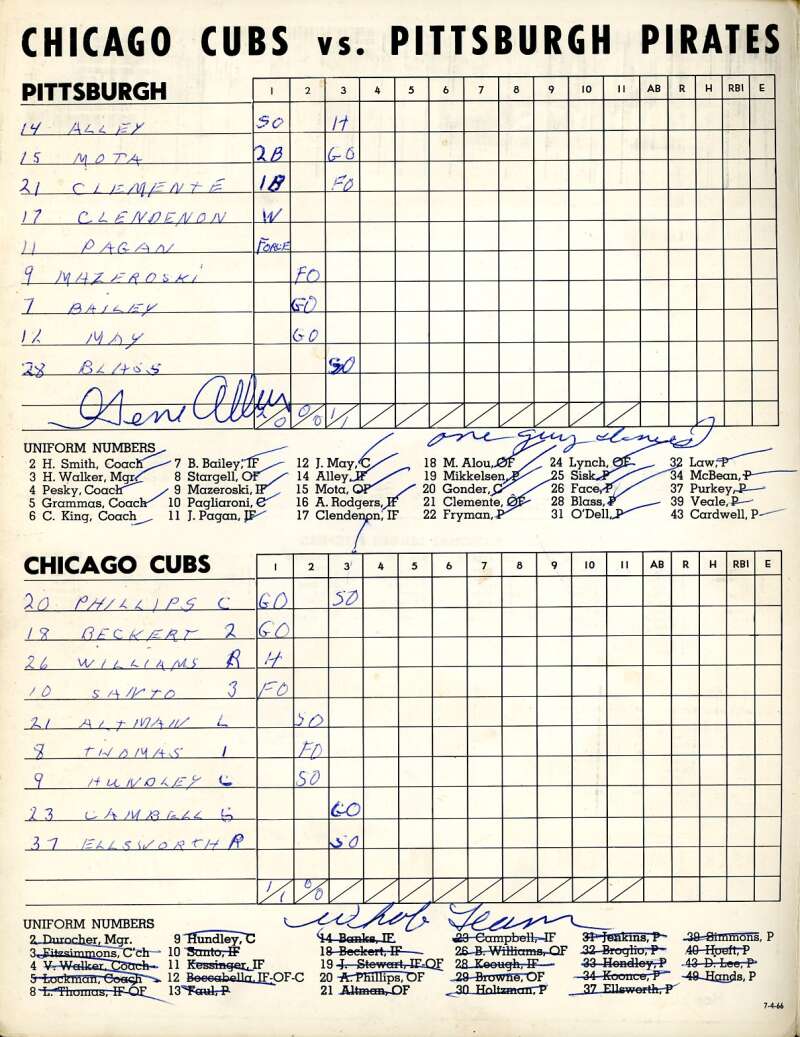 CHICAGO CUBS vs. PITTSBURGH PIRATES
PITTSBURGH 1 2 3 4 5 6 7 8 9 10 11 AB R H RBI E
14 ALLEY SO H
15 MOTA 2B GO
21 CLEMENTE 1B FO
17 CLENDENON W
11 PAGAN FORCE
9 MAZEROSKI FO
7 BAILEY GO
12 MAY GO
28 BLASS SO
Gene 0/0 1/1
one guy
UNIFORM NUMBERS
2 H. Smith, Coach 7 B. Bailey, IF 12 J. May, C 18 M. Alou, OF 24 Lynch, OF 32 Law, P
3 H. Walker, Mgr. 8 Stargell, OF 14 Alley, IF 19 Mikkelsen, P 25 Sisk, P 34 McBean, P
4 Pesky, Coach 9 Mazeroski, IF 15 Mota, OF 20 Gonder, C 26 Face, P 37 Purkey, P
5 Grammas, Coach 10 Pagliaroni, C 16 A. Rodgers, IF 21 Clemente, OF 28 Blass, P 39 Veale, P
6 C. King, Coach 11 J. Pagan, IF 17 Clendenon, IF 22 Fryman, P 31 O'Dell, P 43 Cardwell, P
CHICAGO CUBS 1 2 3 4 5 6 7 8 9 10 11 AB R H RBI E
20 PHILLIPS C GO SO
18 BECKERT 2 GO
26 WILLIAMS R H
10 SANTO 3 FO
21 ALTMAN L SO
8 THOMAS 1 FO
9 HUNDLEY C SO
23 CAMBELL S GO
37 ELLSWORTH R SO
1/1 0/0
Team
UNIFORM NUMBERS
2 Durocher, Mgr. 9 Hundley, C 14 Banks, IF 23 Campbell, IF 31 Jenkins, P 39 Simmons, P
3 Fitzsimmons, C'ch 10 Santo, IF 18 Beckert, IF 26 B. Williams, OF 32 Broglio, P 40 Hoeft, P
4 V. Walker, Coach 11 Kessinger, IF 19 J. Stewart, IF-OF 28 Keough, IF 33 Hendley, P 43 D. Lee, P
5 Lockman, Coach 12 Boccabella, IF-OF-C 20 A. Phillips, OF 29 Browne, OF 34 Koonce, P 49 Hands, P
8 L. Thomas, IF-OF 13 Faul, P 21 Altman, OF 30 Holtzman, P 37 Ellsworth, P
7-4-66